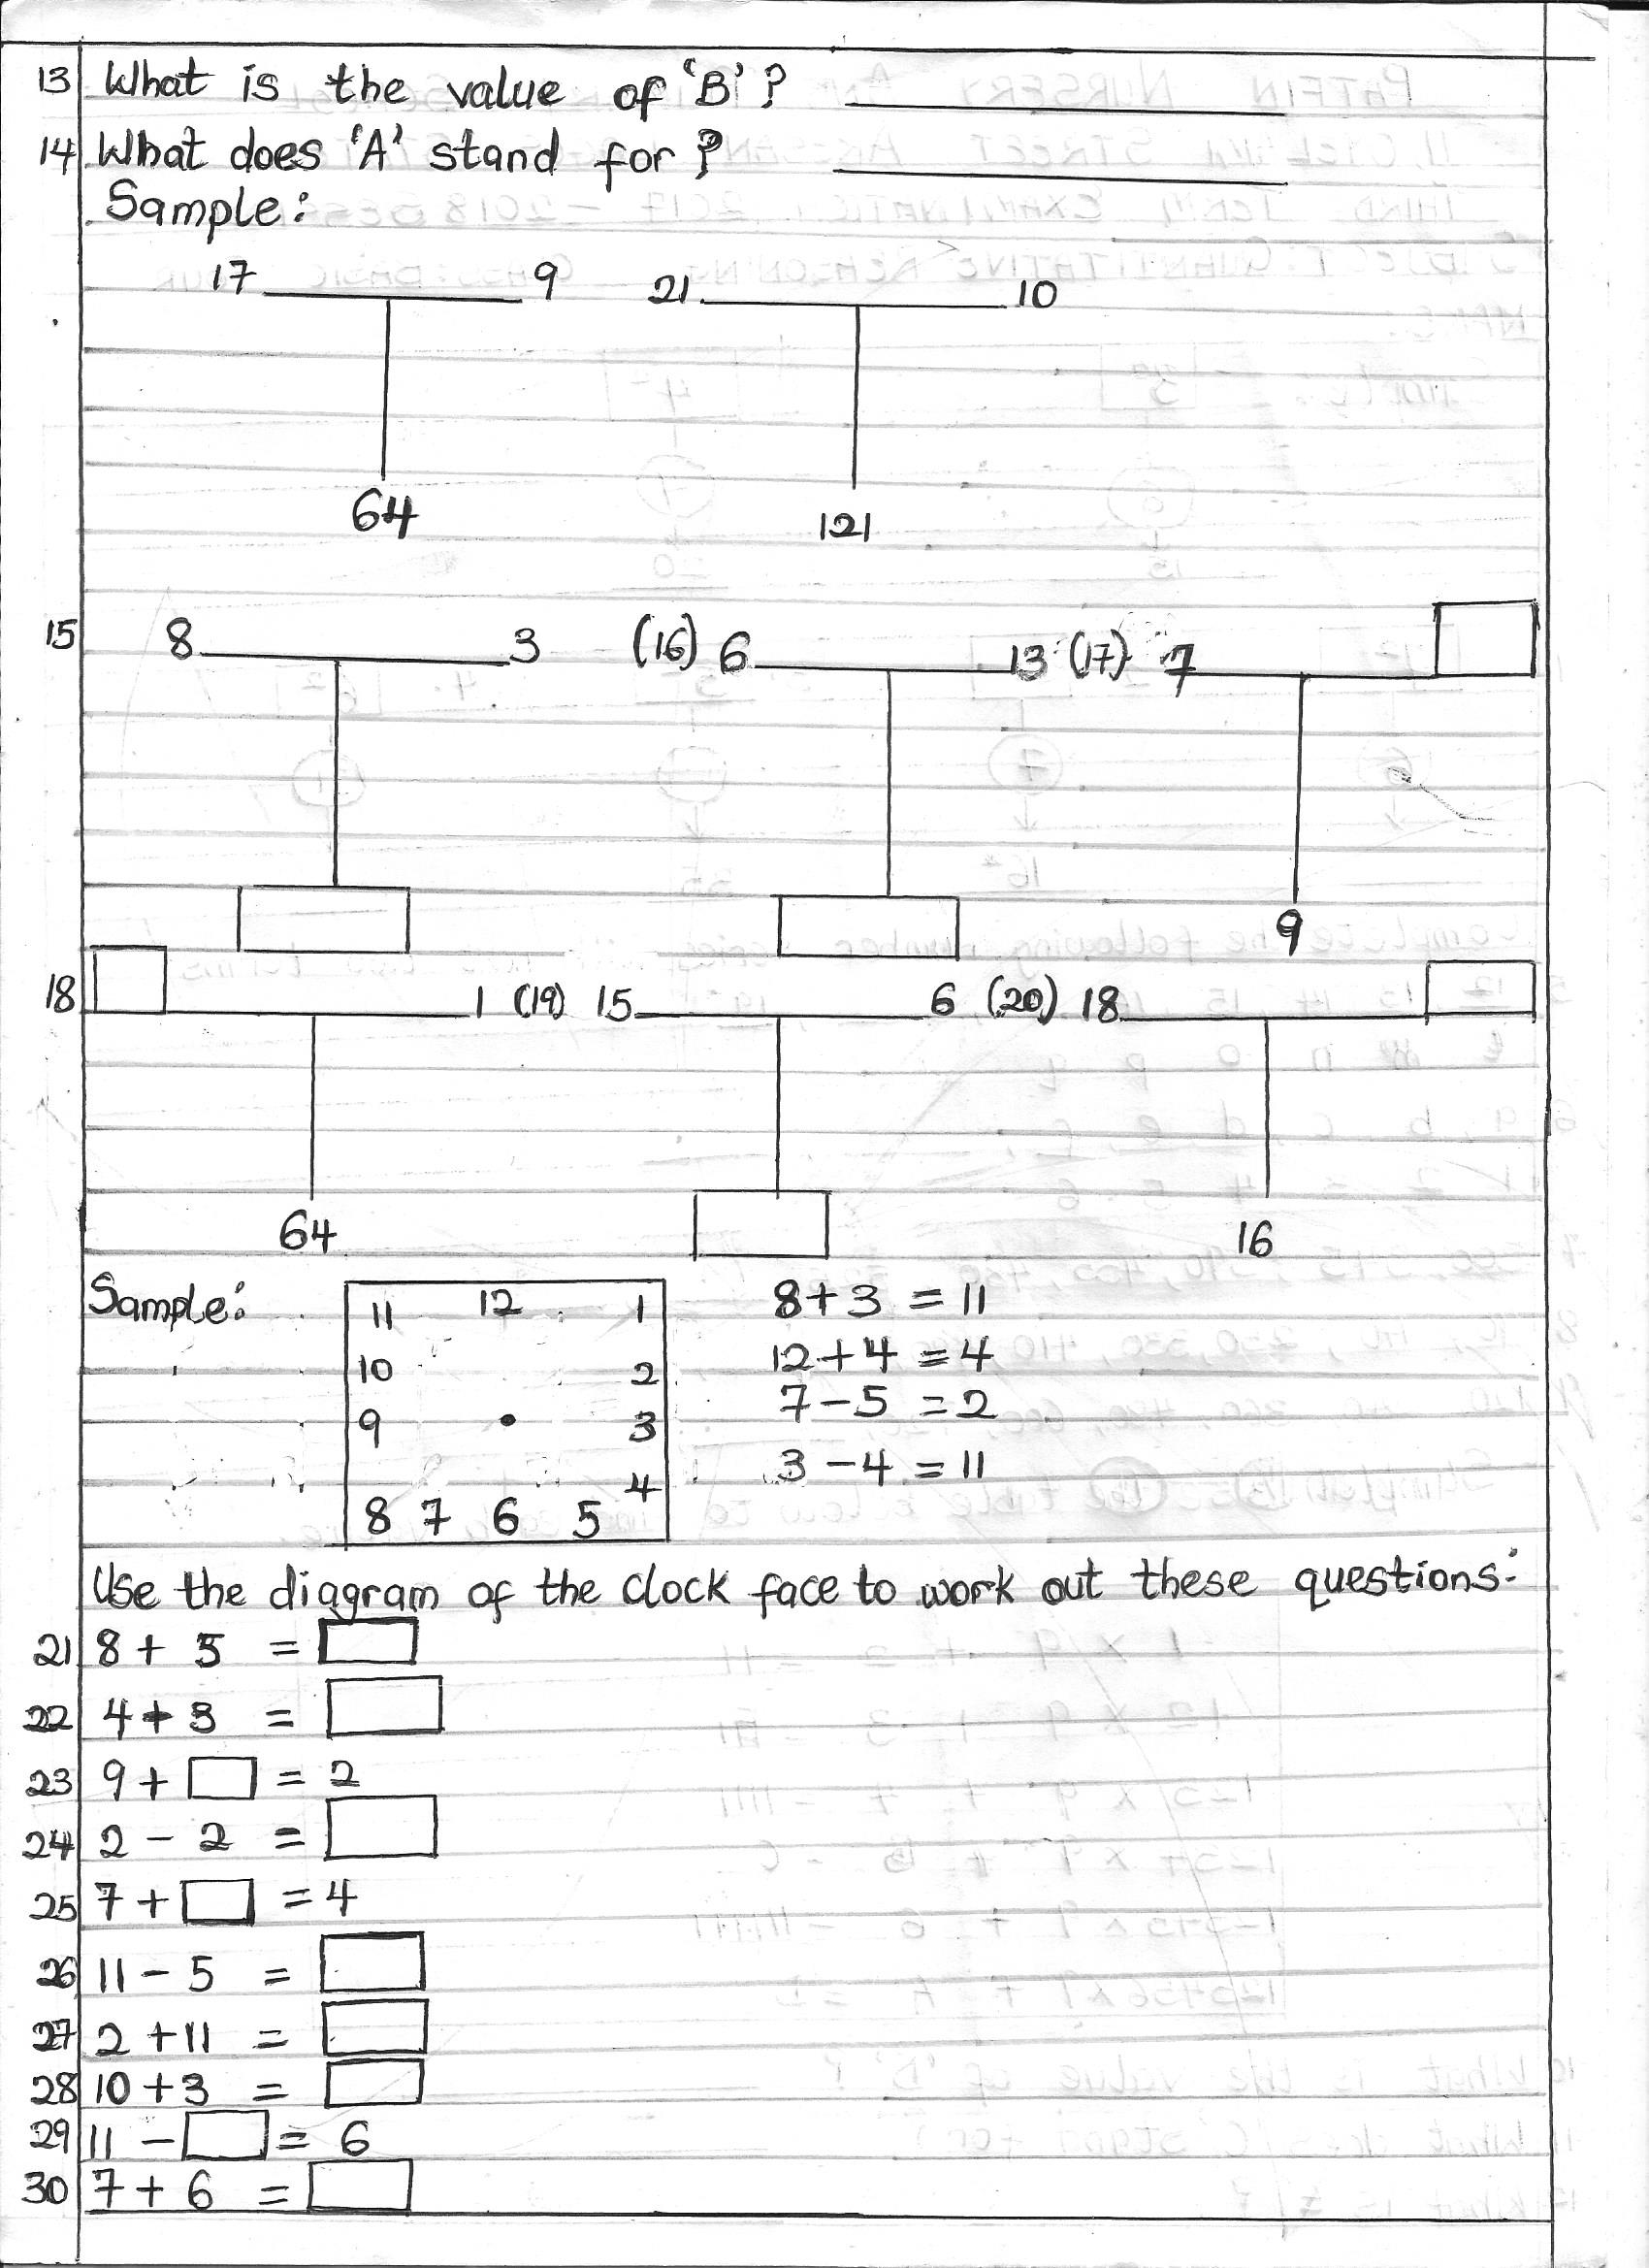 13 What is the value of 'B'?
14 What does 'A' stand for?
Sample:
17 9 21 10
64 121
15 8 3 (16) 6 13 (17) 7
9
18 1 (19) 15 6 (20) 18
64 16
Sample: 11 12 1 8+3 = 11
10 2 12+4 = 4
9 3 7-5 = 2
4 3-4 = 11
8 7 6 5
Use the diagram of the clock face to work out these questions:
21 8 + 5 =
22 4 + 3 =
23 9 + = 2
24 2 - 2 =
25 7 + = 4
26 11 - 5 =
27 2 + 11 =
28 10 + 3 =
29 11 - = 6
30 7 + 6 =